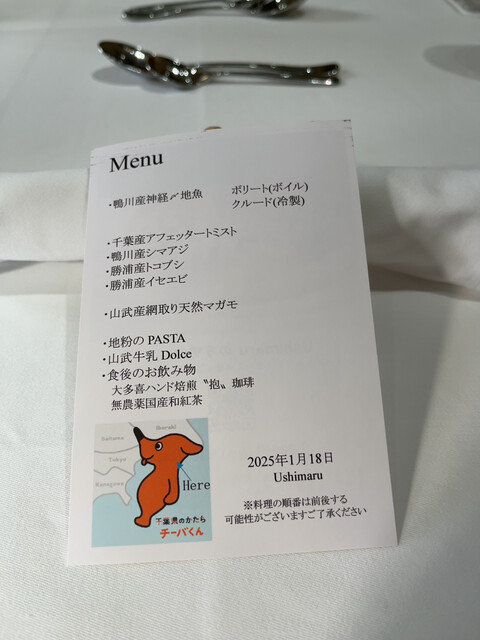 Menu
・鴨川産神経〆地魚 ボリート(ボイル)
クルード(冷製)
・千葉産アフェッタートミスト
・鴨川産シマアジ
・勝浦産トコブシ
・勝浦産イセエビ
・山武産網取り天然マガモ
・地粉の PASTA
・山武牛乳 Dolce
・食後のお飲み物
大多喜ハンド焙煎〝抱〟珈琲
無農薬国産和紅茶
Ibaraki
Saitama
Tokyo
Kanagawa
Here
千葉県のかたち
チーバくん
2025年1月18日
Ushimaru
※料理の順番は前後する
可能性がございますご了承ください